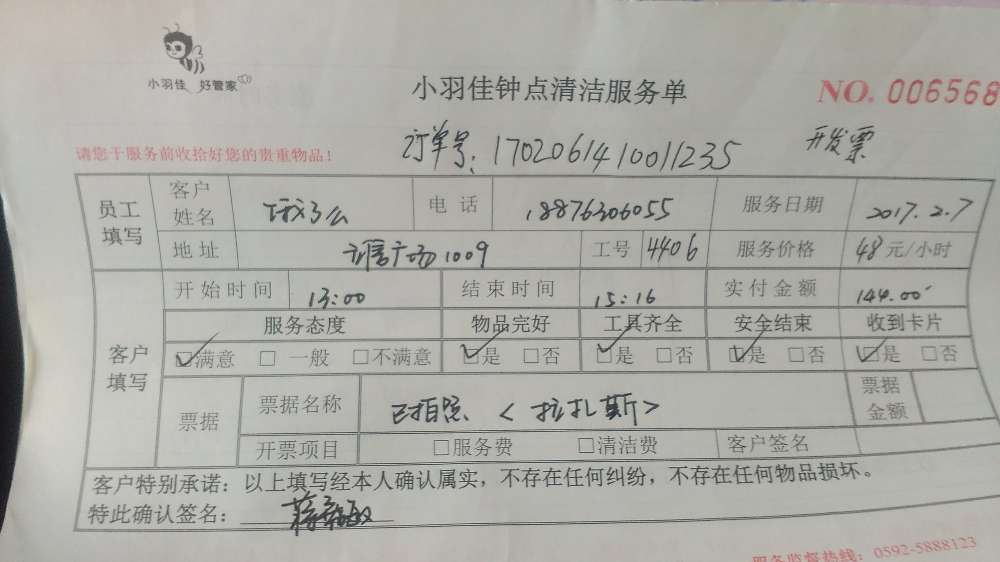 小羽佳 好管家
小羽佳钟点清洁服务单
NO. 006568
请您于服务前收拾好您的贵重物品！
订单号：170206141001 1235 开发票
员工填写
客户姓名 饿了么 电话 18876306055 服务日期 2017.2.7
地址 广场1009 工号 4406 服务价格 48元/小时
客户填写
开始时间 13:00 结束时间 15:16 实付金额 144.00
服务态度 物品完好 工具齐全 安全结束 收到卡片
☑满意 □一般 □不满意 ☑是 □否 ☑是 □否 ☑是 □否 ☑是 □否
票据 票据名称 已拍照<拉扎斯> 票据金额
开票项目 □服务费 □清洁费 客户签名
客户特别承诺：以上填写经本人确认属实，不存在任何纠纷，不存在任何物品损坏。
特此确认签名：
服务监督热线：0592-5888123